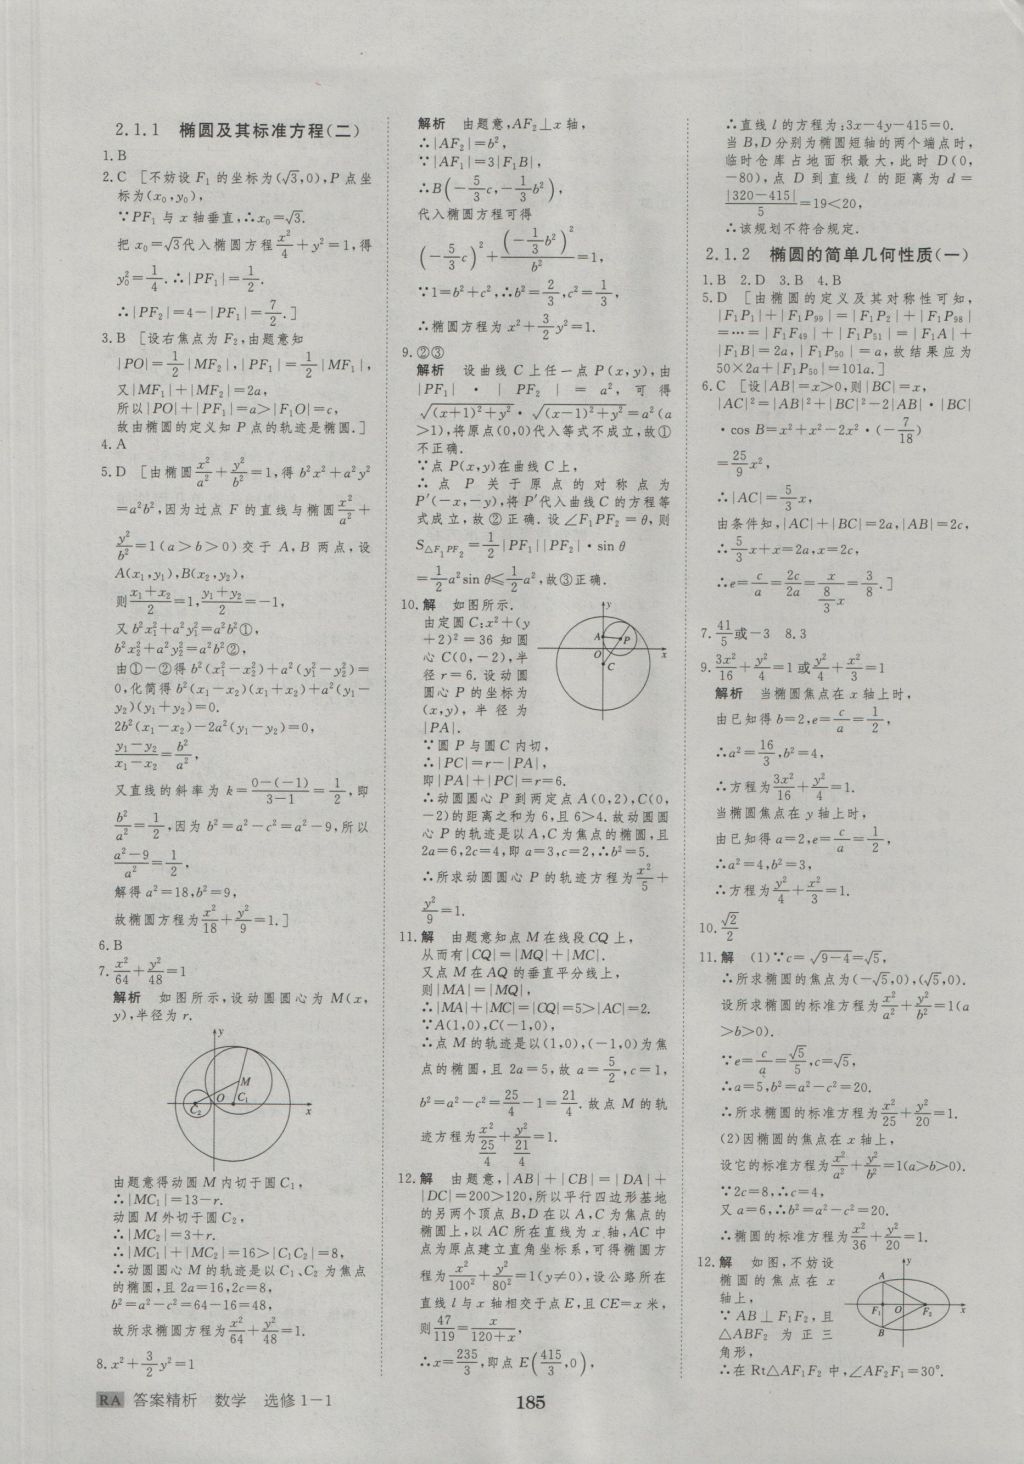 2.1.1 椭圆及其标准方程(二)
1.B
2.C [不妨设 F₁ 的坐标为(√3,0),P 点坐
标为(x₀,y₀),
∵PF₁ 与 x 轴垂直,∴x₀=√3.
把 x₀=√3代入椭圆方程x²/4+y²=1,得
y₀²=1/4.∴|PF₁|=1/2.
∴|PF₂|=4-|PF₁|=7/2.]
3.B [设右焦点为 F₂,由题意知
|PO|=1/2|MF₂|,|PF₁|=1/2|MF₁|,
又|MF₁|+|MF₂|=2a,
所以|PO|+|PF₁|=a>|F₁O|=c,
故由椭圆的定义知 P 点的轨迹是椭圆.]
4.A
5.D [由椭圆x²/a²+y²/b²=1,得 b²x²+a²y²
=a²b²,因为过点 F 的直线与椭圆x²/a²+
y²/b²=1(a>b>0)交于 A,B 两点,设
A(x₁,y₁),B(x₂,y₂),
则(x₁+x₂)/2=1,(y₁+y₂)/2=-1,
又 b²x₁²+a²y₁²=a²b²①,
b²x₂²+a²y₂²=a²b²②,
由①-②得 b²(x₁²-x₂²)+a²(y₁²-y₂²)=
0,化简得 b²(x₁-x₂)(x₁+x₂)+a²(y₁-
y₂)(y₁+y₂)=0.
2b²(x₁-x₂)-2a²(y₁-y₂)=0,
(y₁-y₂)/(x₁-x₂)=b²/a²,
又直线的斜率为 k=(0-(-1))/(3-1)=1/2,即
b²/a²=1/2,因为 b²=a²-c²=a²-9,所以
(a²-9)/a²=1/2,
解得 a²=18,b²=9,
故椭圆方程为x²/18+y²/9=1.]
6.B
7.x²/64+y²/48=1
解析 如图所示,设动圆圆心为 M(x,
y),半径为 r.
y
M
O
C₂
C₁
x
由题意得动圆 M 内切于圆 C₁,
∴|MC₁|=13-r.
动圆 M 外切于圆 C₂,
∴|MC₂|=3+r.
∴|MC₁|+|MC₂|=16>|C₁C₂|=8,
∴动圆圆心 M 的轨迹是以 C₁、C₂ 为焦点
的椭圆,且 2a=16,2c=8,
b²=a²-c²=64-16=48,
故所求椭圆方程为x²/64+y²/48=1.
8.x²+3/2y²=1
解析 由题意,AF₂⊥x 轴,
∴|AF₂|=b²,
∵|AF₁|=3|F₁B|,
∴B(-5/3c,-1/3b²),
代入椭圆方程可得
(-5/3c)²+(-1/3b²)²/b²=1,
∵1=b²+c²,∴b²=2/3,c²=1/3,
∴椭圆方程为 x²+3/2y²=1.
9.②③
解析 设曲线 C 上任一点 P(x,y),由
|PF₁|·|PF₂|=a²,可得
√((x+1)²+y²)·√((x-1)²+y²)=a²(a
>1),将原点(0,0)代入等式不成立,故①
不正确.
∵点 P(x,y)在曲线 C 上,
∴点 P 关于原点的对称点为
P′(-x,-y),将 P′代入曲线 C 的方程等
式成立,故②正确.设∠F₁PF₂=θ,则
S△F₁PF₂=1/2|PF₁||PF₂|·sin θ
=1/2a²sin θ≤1/2a²,故③正确.
10.解 如图所示.
由定圆 C:x²+(y
+2)²=36 知圆
心 C(0,-2),半
径 r=6.设动圆
圆心 P 的坐标为
(x,y),半径为
|PA|.
y
A
P
O
x
C
∵圆 P 与圆 C 内切,
∴|PC|=r-|PA|,
即|PA|+|PC|=r=6.
∴动圆圆心 P 到两定点 A(0,2),C(0,
-2)的距离之和为 6,且 6>4.故动圆圆
心 P 的轨迹是以 A,C 为焦点的椭圆,且
2a=6,2c=4,即 a=3,c=2,∴b²=5.
∴所求动圆圆心 P 的轨迹方程为x²/5+
y²/9=1.
11.解 由题意知点 M 在线段 CQ 上,
从而有|CQ|=|MQ|+|MC|.
又点 M 在 AQ 的垂直平分线上,
则|MA|=|MQ|,
∴|MA|+|MC|=|CQ|=5>|AC|=2.
∵A(1,0),C(-1,0),
∴点 M 的轨迹是以(1,0),(-1,0)为焦
点的椭圆,且 2a=5,故 a=5/2,c=1,
b²=a²-c²=25/4-1=21/4.故点 M 的轨
迹方程为x²/(25/4)+y²/(21/4)=1.
12.解 由题意,|AB|+|CB|=|DA|+
|DC|=200>120,所以平行四边形基地
的另两个顶点 B,D 在以 A,C 为焦点的
椭圆上,以 AC 所在直线为 x 轴,AC 中
点为原点建立直角坐标系,可得椭圆方
程为x²/100²+y²/80²=1(y≠0),设公路所在
直线 l 与 x 轴相交于点 E,且 CE=x 米,
则47/119=x/(120+x),
∴x=235/3,即点 E(415/3,0),
∴直线 l 的方程为:3x-4y-415=0.
当 B,D 分别为椭圆短轴的两个端点时,
临时仓库占地面积最大,此时 D(0,
-80),点 D 到直线 l 的距离为 d=
|320-415|/5=19<20,
∴该规划不符合规定.
2.1.2 椭圆的简单几何性质(一)
1.B 2.D 3.B 4.B
5.D [由椭圆的定义及其对称性可知,
|F₁P₁|+|F₁P₉₉|=|F₁P₂|+|F₁P₉₈|
=…=|F₁F₄₉|+|F₁P₅₁|=|F₁A|+
|F₁B|=2a,|F₁P₅₀|=a,故结果应为
50×2a+|F₁P₅₀|=101a.]
6.C [设|AB|=x>0,则|BC|=x,
|AC|²=|AB|²+|BC|²-2|AB|·|BC|
·cos B=x²+x²-2x²·(-7/18)
=25/9x²,
∴|AC|=5/3x,
由条件知,|AC|+|BC|=2a,|AB|=2c,
∴5/3x+x=2a,x=2c,
∴e=c/a=2c/2a=x/(8/3x)=3/8.]
7.41/5或-3 8.3
9.3x²/16+y²/4=1或y²/4+x²/3=1
解析 当椭圆焦点在 x 轴上时,
由已知得 b=2,e=c/a=1/2,
∴a²=16/3,b²=4,
∴方程为3x²/16+y²/4=1.
当椭圆焦点在 y 轴上时,
由已知得 a=2,e=c/a=1/2,
∴a²=4,b²=3,
∴方程为y²/4+x²/3=1.
10.√2/2
11.解 (1)∵c=√(9-4)=√5,
∴所求椭圆的焦点为(-√5,0),(√5,0).
设所求椭圆的标准方程为x²/a²+y²/b²=1(a
>b>0).
∵e=c/a=√5/5,c=√5,
∴a=5,b²=a²-c²=20.
∴所求椭圆的标准方程为x²/25+y²/20=1.
(2)因椭圆的焦点在 x 轴上,
设它的标准方程为x²/a²+y²/b²=1(a>b>0).
∵2c=8,∴c=4,
又 a=6,∴b²=a²-c²=20.
∴椭圆的标准方程为x²/36+y²/20=1.
12.解 如图,不妨设
椭圆的焦点在 x
轴上,
∵AB⊥F₁F₂,且
△ABF₂ 为正三
角形,
y
A
F₁
O
F₂
x
B
∴在 Rt△AF₁F₂ 中,∠AF₂F₁=30°.
RA 答案精析 数学 选修 1-1
185